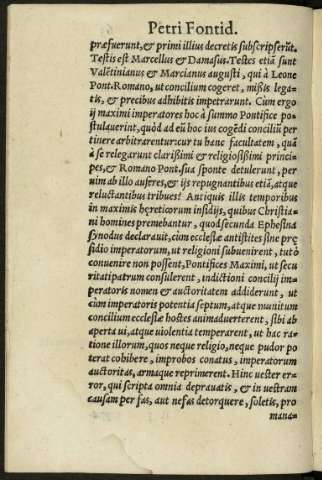 Petri Fontid.
præfuerunt, & primi illius decretis subscripserũt.
Testis est Marcellus & Damasus. Testes etiã sunt
Valētinianus & Marcianus augusti, qui à Leone
Pont. Romano, ut concilium cogeret, mißis lega-
tis, & precibus adhibitis impetrarunt. Cùm ergo
ij maximi imperatores hoc à summo Pontifice po-
stulauerint, quòd ad eũ hoc ius cogēdi concilij per
tinere arbitrarentur: cur tu hanc facultatem, quã
à se relegarunt clarißimi & religiosißimi princi-
pes, & Romano Pont. sua sponte detulerunt, per
uim ab illo auferes, & ijs repugnantibus etiã, atque
reluctantibus tribues? Antiquis illis temporibus
in maximis hęreticorum insidijs, quibus Christia-
ni homines premebantur, quod secunda Ephesina
synodus declarauit, cùm ecclesiæ antistites sine prę
sidio imperatorum, ut religioni subuenirent, tutò
conuenire non possent, Pontifices Maximi, ut secu
ritati patrum consulerent, indictioni concilij im-
peratoris nomen & auctoritatem addiderunt, ut
cùm imperatoris potentia septum, atque munitum
concilium ecclesiæ hostes animaduerterent, sibi ab
aperta ui, atque uiolentia temperarent, ut hac ra-
tione illorum, quos neque religio, neque pudor po
terat cohibere, improbos conatus, imperatorum
auctoritas, armaque reprimerent. Hinc uester er-
ror, qui scripta omnia deprauatis, & in uestram
causam per fas, aut nefas detorquere, soletis, pro
mana-